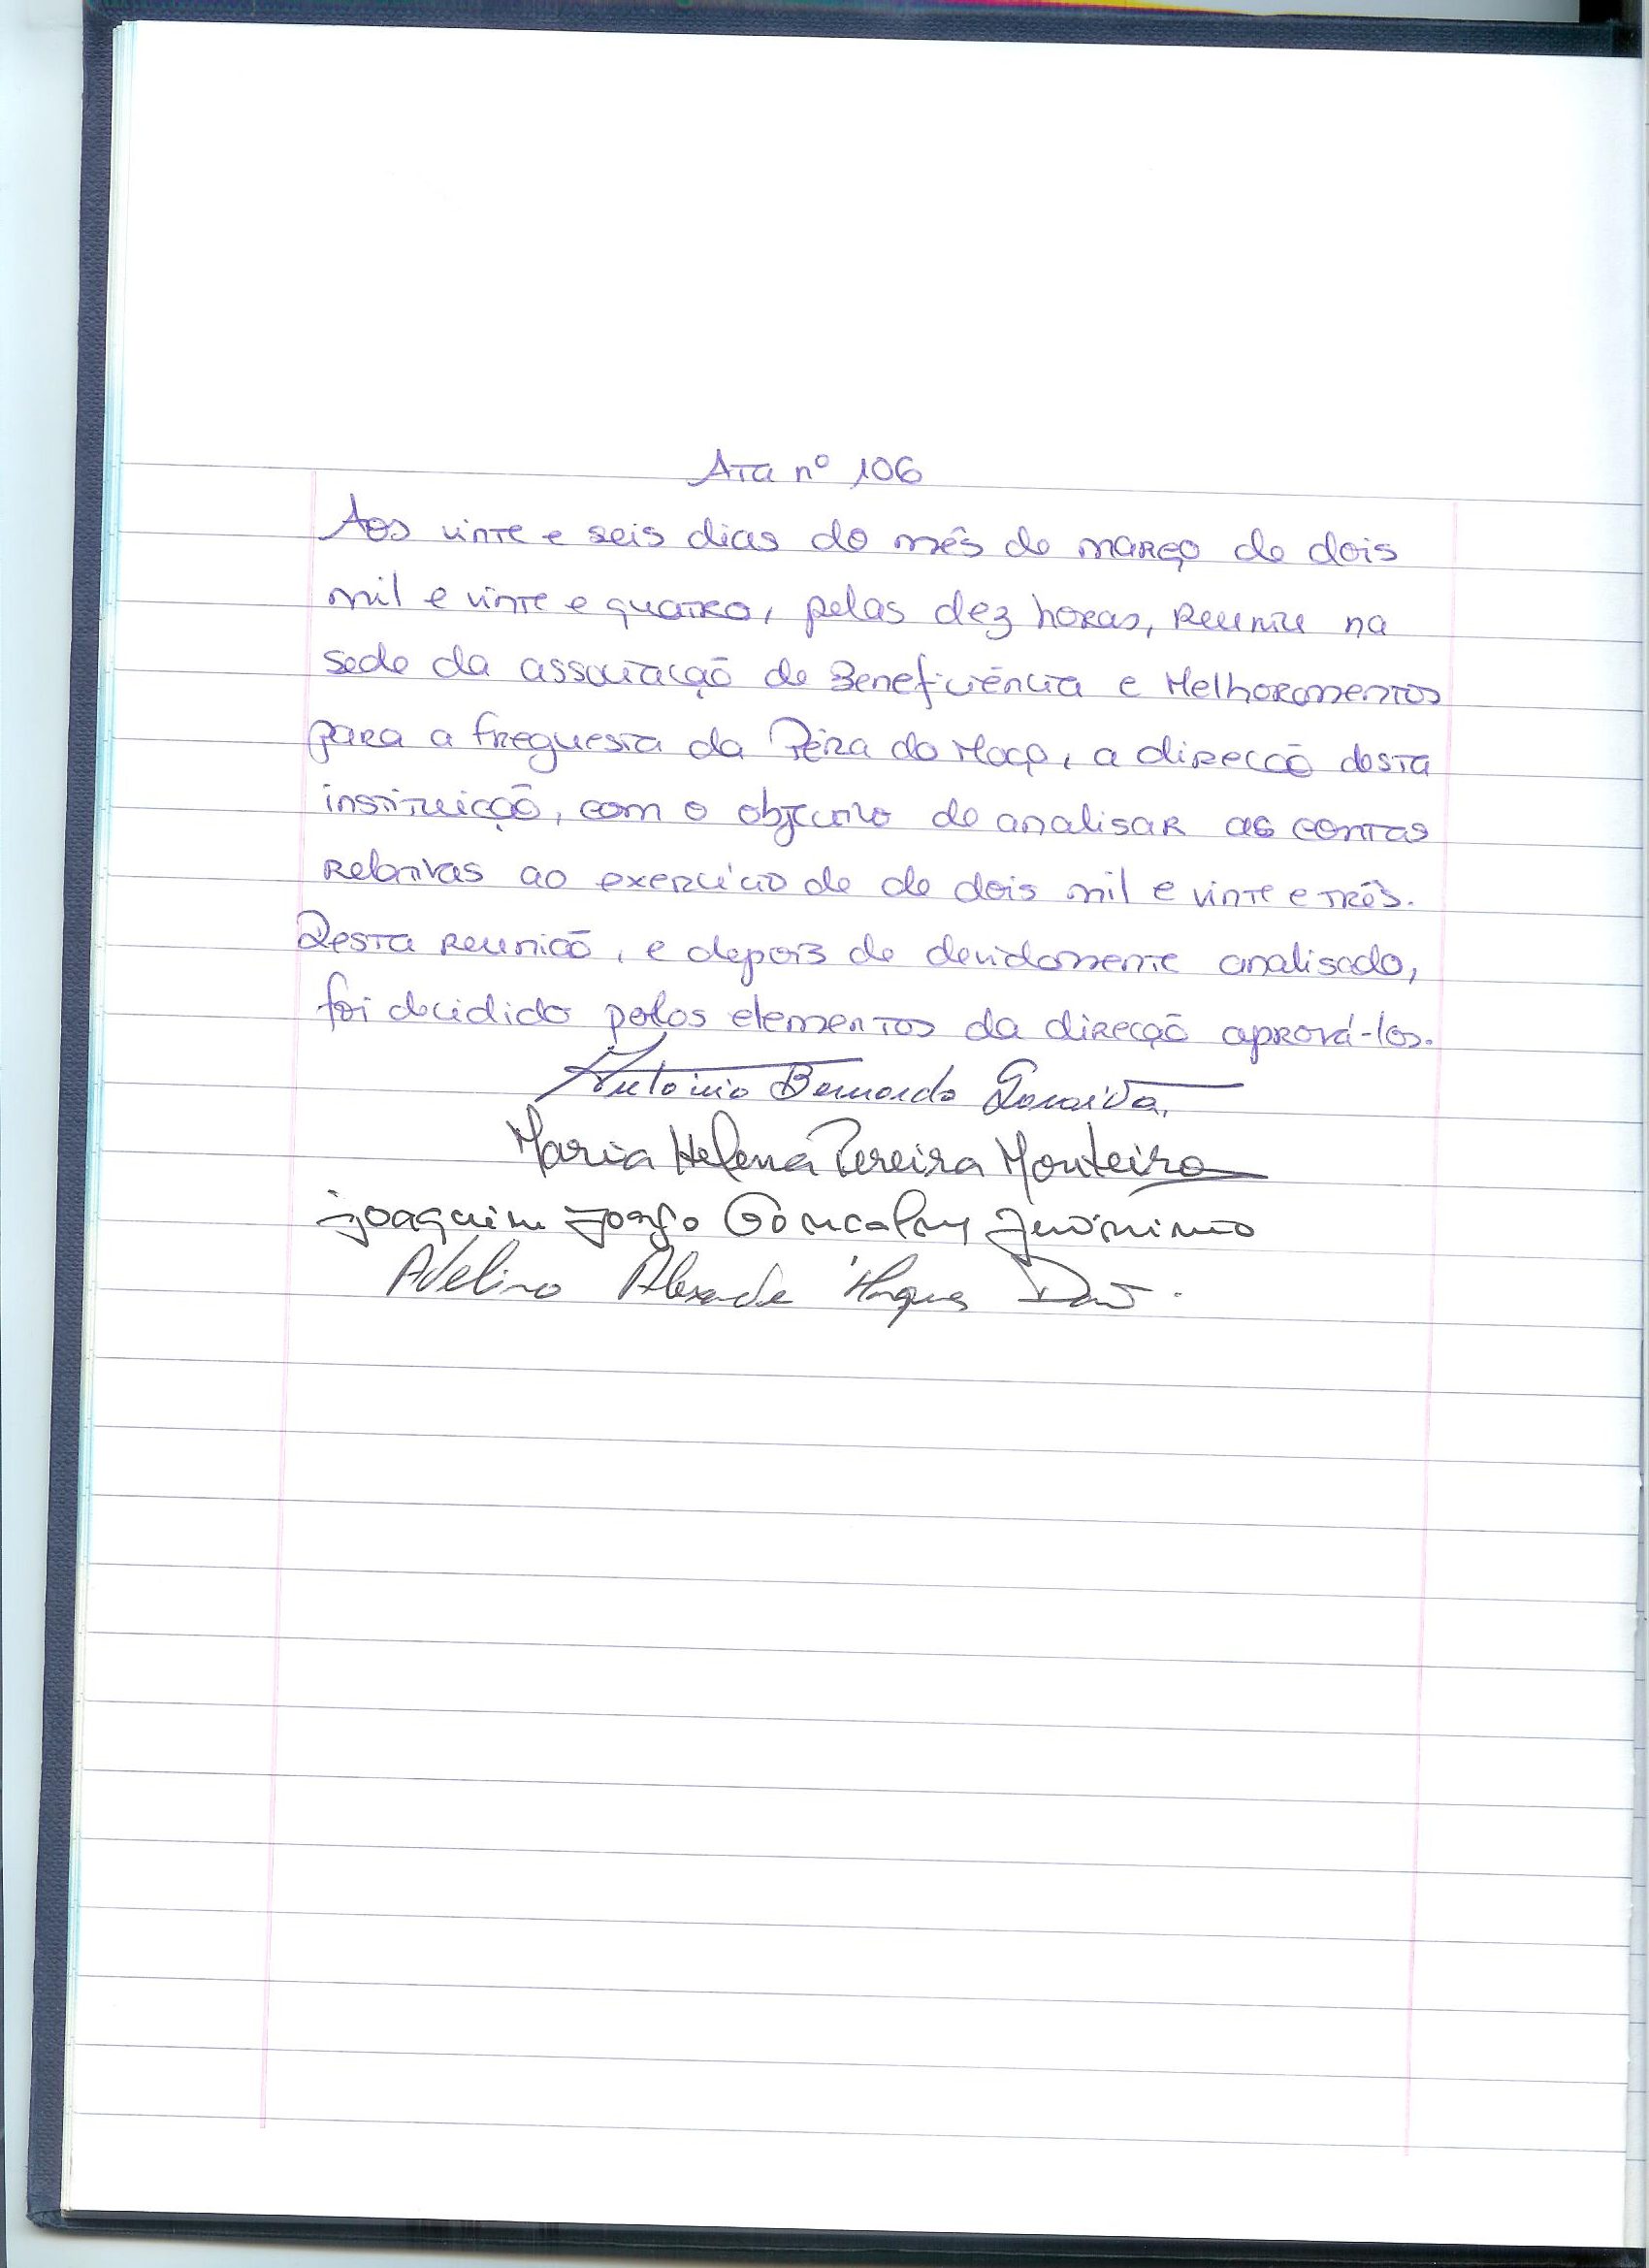 Ata nº 106
Aos vinte e seis dias do mês de março de dois
mil e vinte e quatro, pelas dez horas, Reuniu na
sede da associação de Beneficiência e Melhoramentos
para a freguesia da Pêra do Moço, a direcção desta
instituição, com o objectivo de analisar as contas
Relativas ao exercício de de dois mil e vinte e três.
Desta Reunião, e depois de devidamente analisado,
foi decidido pelos elementos da direcção aprová-los.
António Bernardo Saraiva,
Maria Helena Pereira Monteiro
Joaquim Jorge Gonçalves Jerónimo
Adelino Alexandre Marques